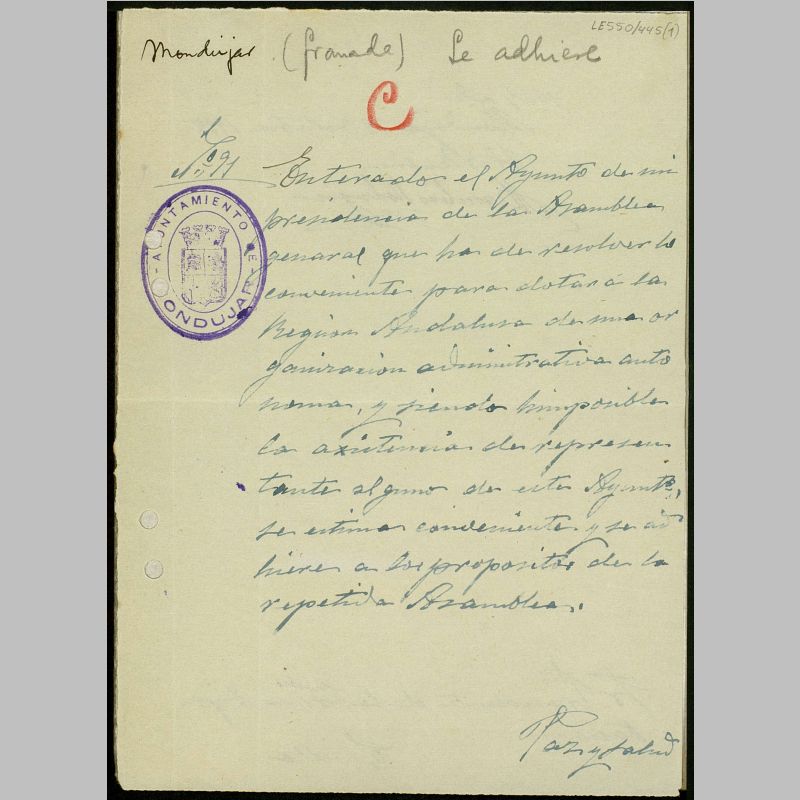 LE550/445(1)
Mondujar (Granada) Se adhiere
C
Nº 91
AYUNTAMIENTO DE
MONDUJAR
Enterado el Ayunto de mi
presidencia de la Asamblea
general que ha de resolver lo
conveniente para dotar á la
Region Andalusa de una or
ganizacion administrativa auto
noma, y siendo himposible
la axistencia de represen
tante alguno de este Ayuntº,
se estima conveniente y se ad
hiere a los propositos de la
repetida Asamblea.
Paz y salud